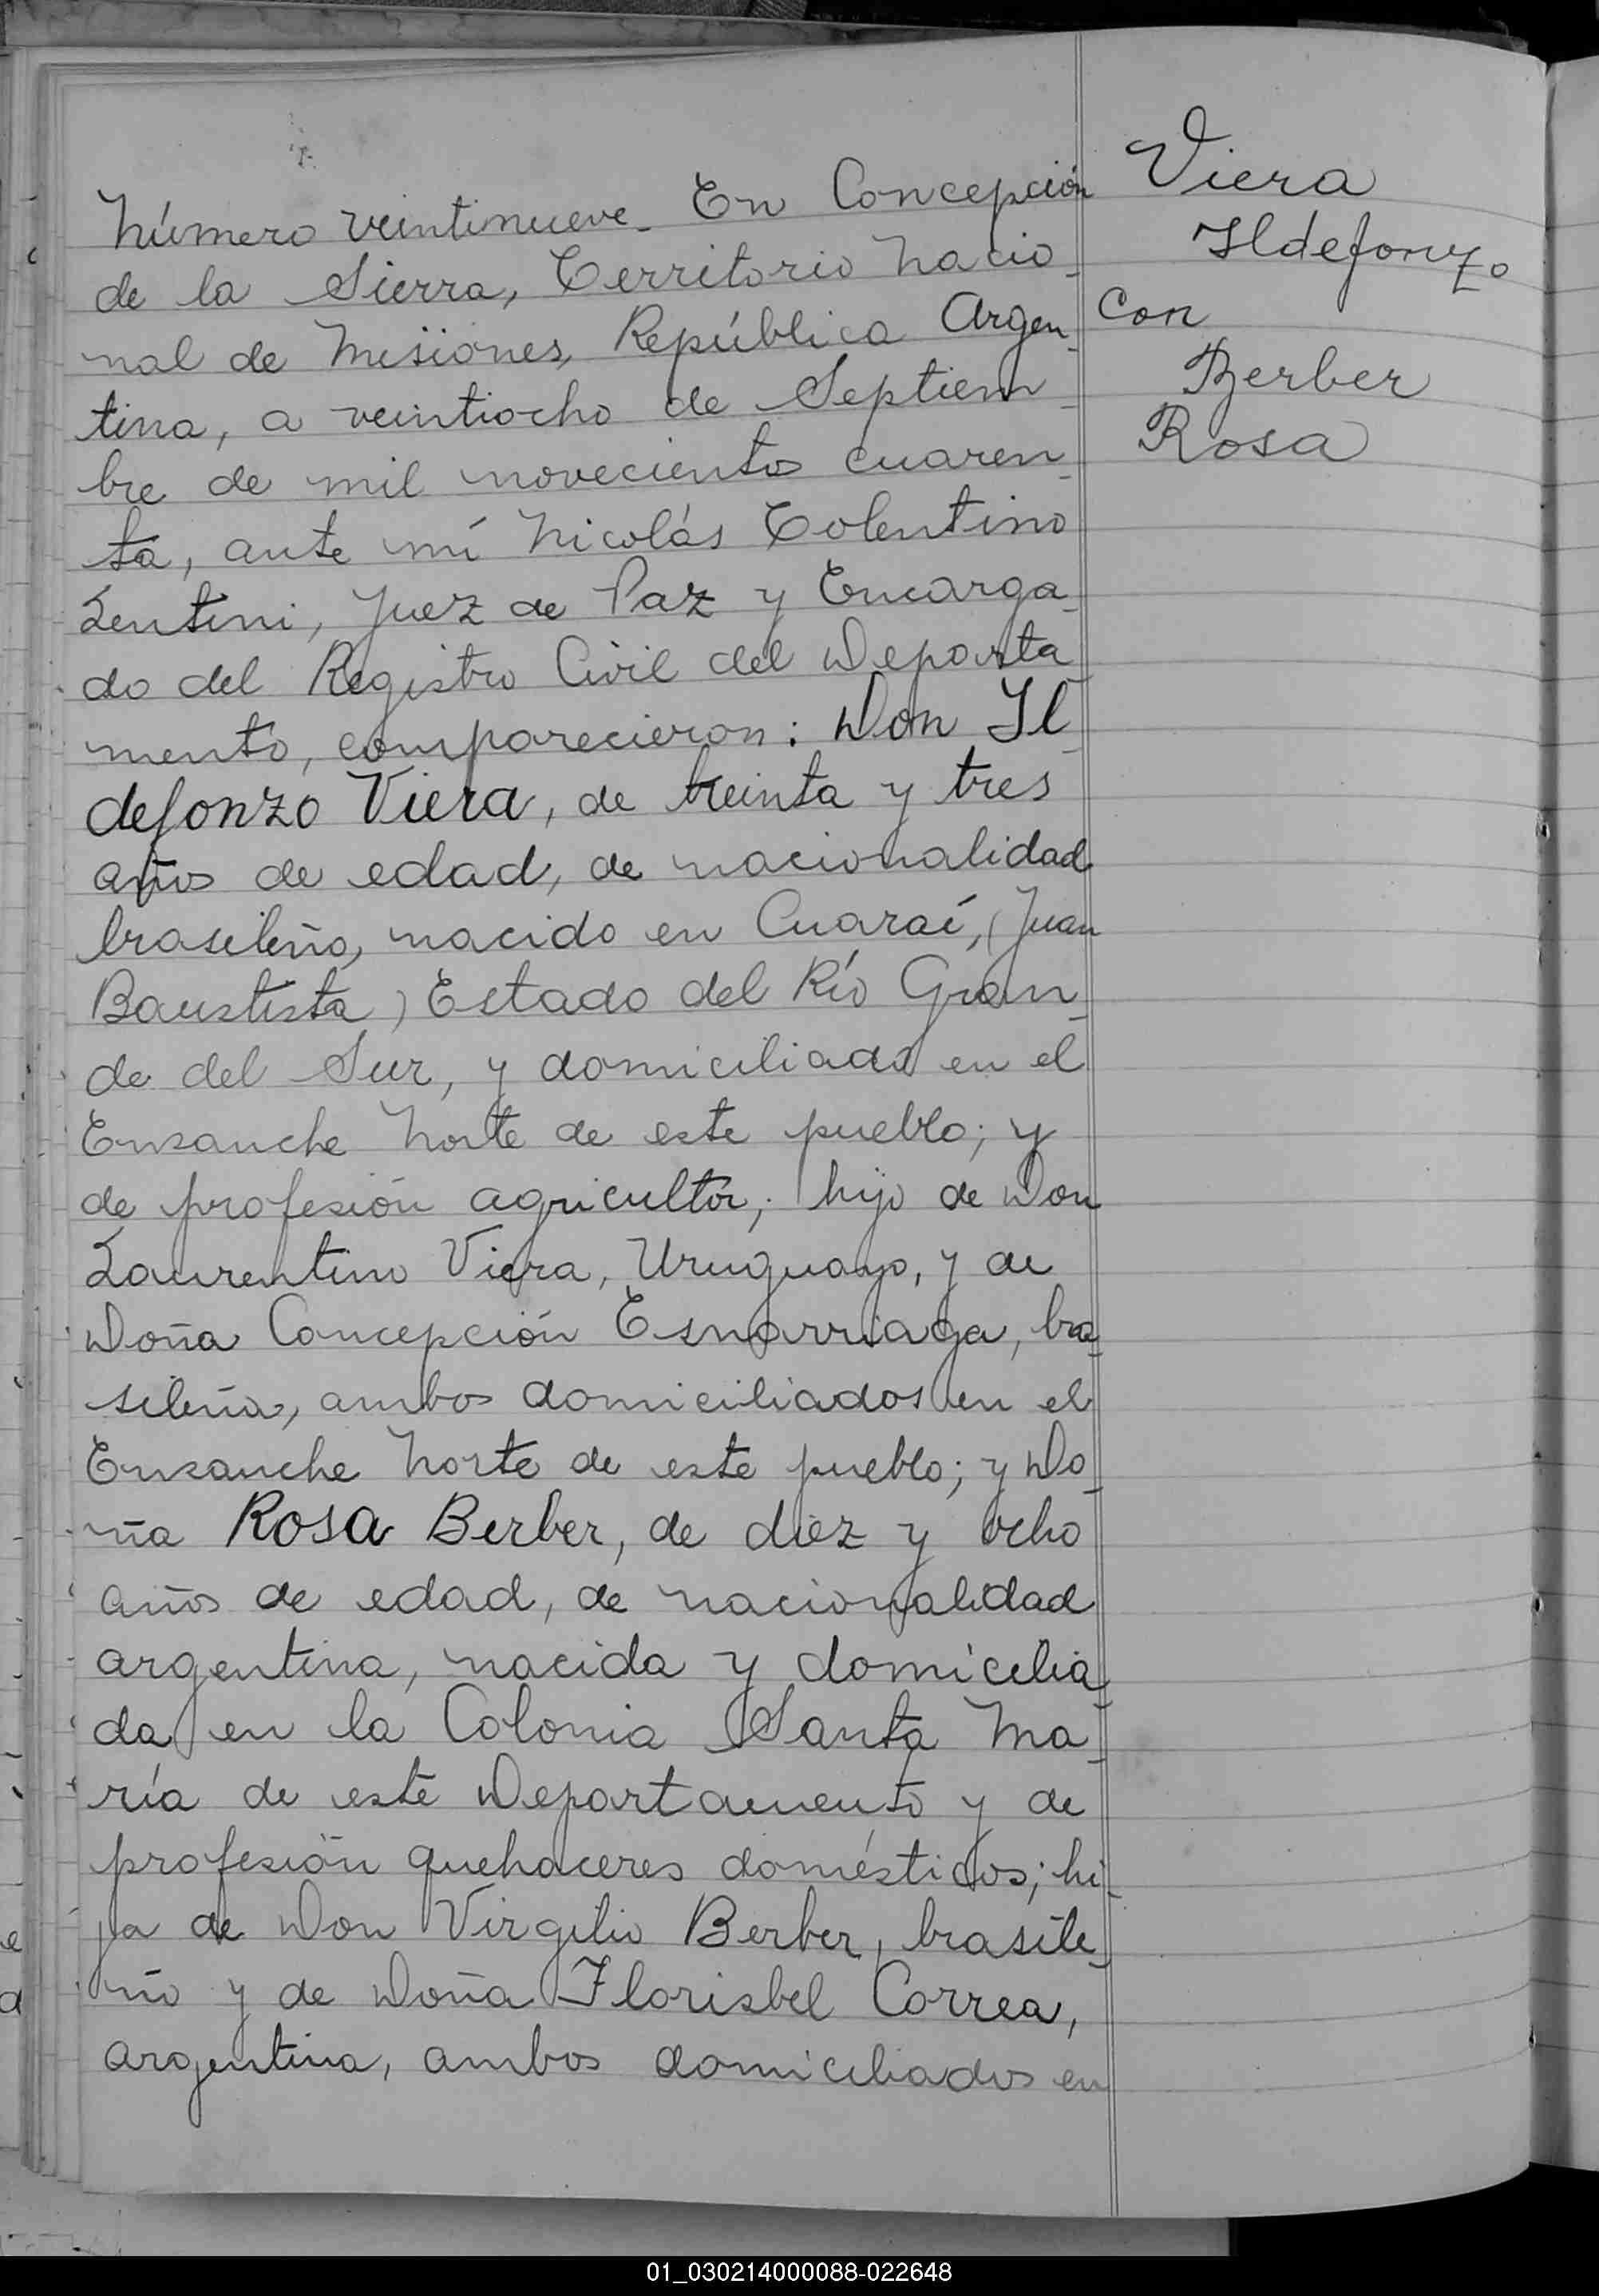 Número veintinueve_ En Concepción
de la Sierra, Territorio Nacio_
nal de Misiones, República Argen_
tina, a veintiocho de Septiem_
bre de mil novecientos cuaren_
ta, ante mí Nicolás Tolentino
Lentini, Juez de Paz y Encarga_
do del Registro Civil del Departa_
mento, comparecieron: Don Il_
defonzo Viera, de treinta y tres
años de edad, de nacionalidad
brasileño, nacido en Cuaraí, (Juan
Baustista) Estado del Río Gran_
de del Sur, y domiciliado en el
Ensanche Norte de este pueblo; y
de profesión agricultor; hijo de Don
Laurentino Viera, Uruguayo, y de
Doña Concepción Esnarriaga, bra_
sileña, ambos domiciliados en el
Ensanche Norte de este pueblo; y Do_
ña Rosa Berber, de diez y ocho
años de edad, de nacionalidad
argentina, nacida y domicilia_
da en la Colonia Santa Ma_
ría de este Departamento y de
profesión quehaceres domésticos; hi_
ja de Don Virgilio Berber, brasile_
ño y de Doña Florisbel Correa,
argentina, ambos domiciliados en
Viera
Ildefonzo
Con
Berber
Rosa
01_030214000088-022648